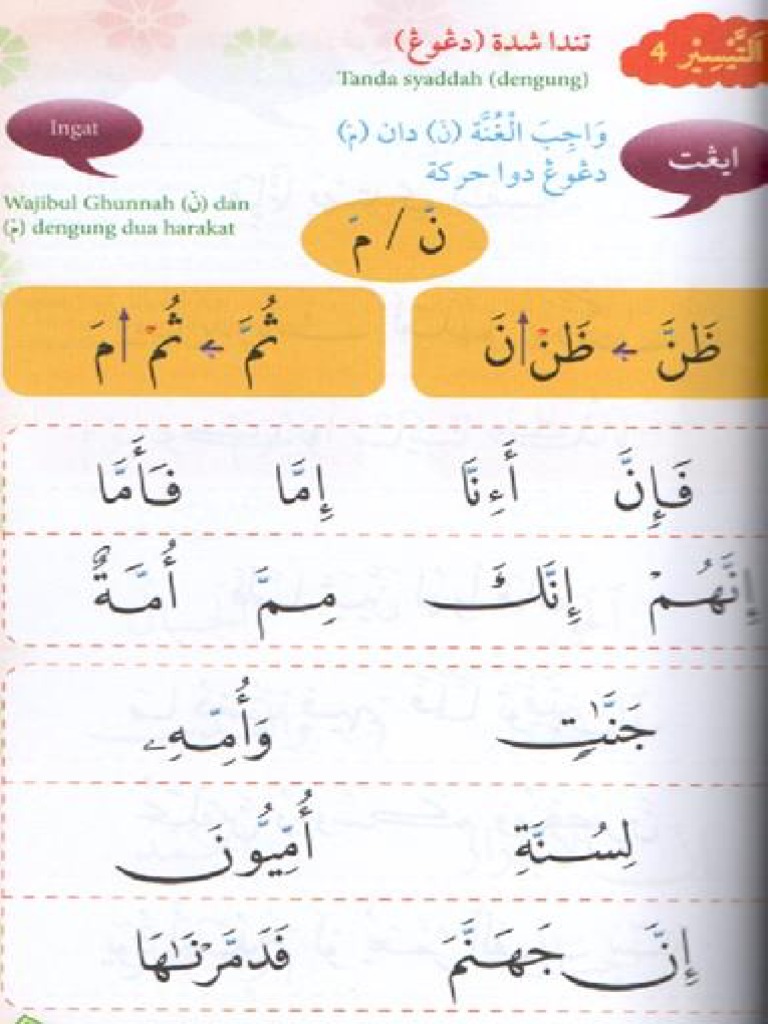 اَلتَّيْسِيْر 4
تندا شدة (دڠوڠ)
Tanda syaddah (dengung)
ايڠت
وَاجِبَ الْغُنَّة (نّ) دان (مّ)
دڠوڠ دوا حركة
Ingat
Wajibul Ghunnah (نّ) dan
(مّ) dengung dua harakat
نَّ / مَّ
ظَنَّ ← ظَنْ نَ
ثُمَّ ← ثُمْ مَ
فَإِنَّ أَءِنَّا إِمَّا فَأَمَّا
إِنَّهُمْ إِنَّكَ مِمَّ أُمَّةٌ
جَنَّٰتٍ وَأُمِّهِۦ
لِسُنَّةِ أُمِّيُّونَ
إِنَّ جَهَنَّمَ فَدَمَّرْنَٰهَا